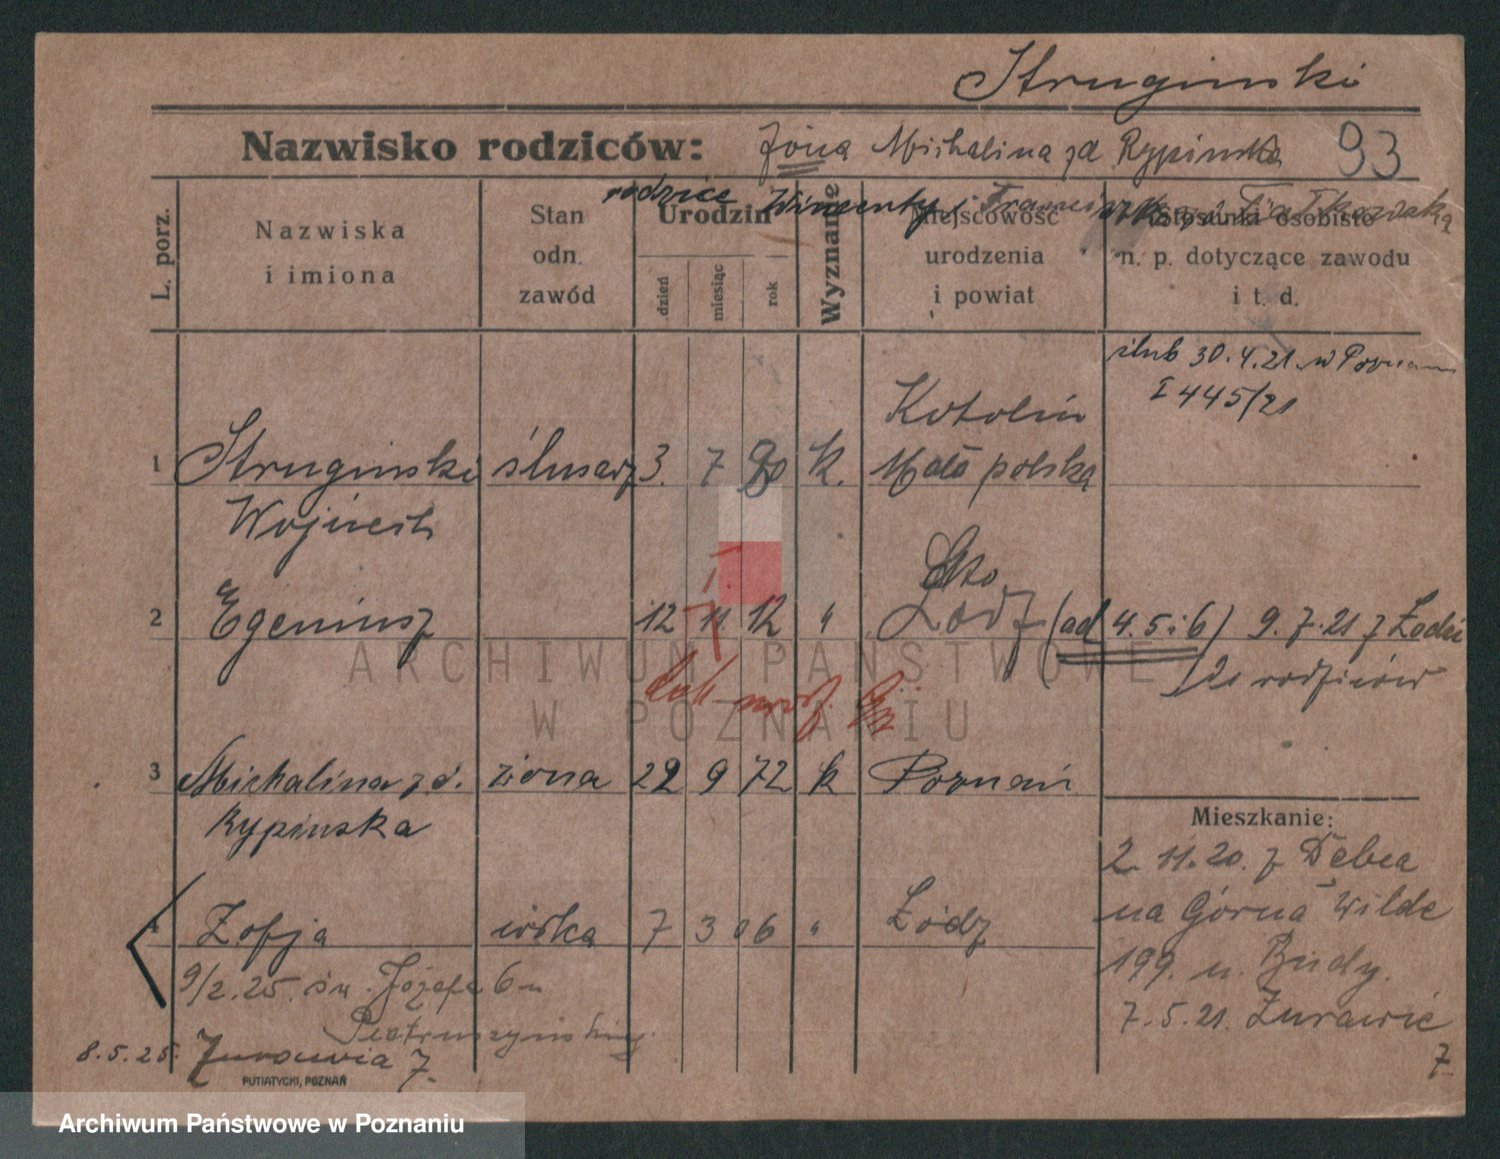 Struginski
Nazwisko rodziców: żona Michalina zd Rypinska 93
rodzice Wincenty i Franciszka zd
L. porz.
Nazwiska i imiona
Stan odn. zawód
Urodzin
dzień
miesiąc
rok
Wyznanie
Miejscowość urodzenia i powiat
Stosunki osobiste n. p. dotyczące zawodu i t. d.
ślub 30.4.21 w Poznaniu
I 445/21
Kotolin
1 Struginski ślusarz 3. 7 80 k. Mało polska
Wojciech
2 Egeniusz 12 11 12 " Łodz (ad 4. 5 i 6) 9.7.21 z Łodzi
rodziców
3 Michalina zd. żona 22 9 72 k Poznań
Rypinska
Mieszkanie:
2.11.20. z Dębca
na Górna Wilde
4 Zofja córka 7 3 06 " Łódz
199. u. Budy.
9/2.25. św. Józefa 6 u
7.5.21. Żurawie
7
8.5.25. Żurawia 7.
PUTIATYCKI, POZNAŃ
ARCHIWUM PAŃSTWOWE
W POZNANIU
Archiwum Państwowe w Poznaniu